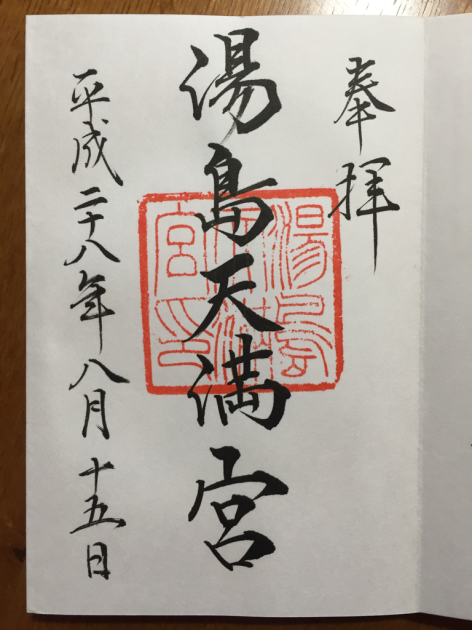 奉拝
湯島天満宮
平成二十八年八月十五日
湯島
天満
宮印